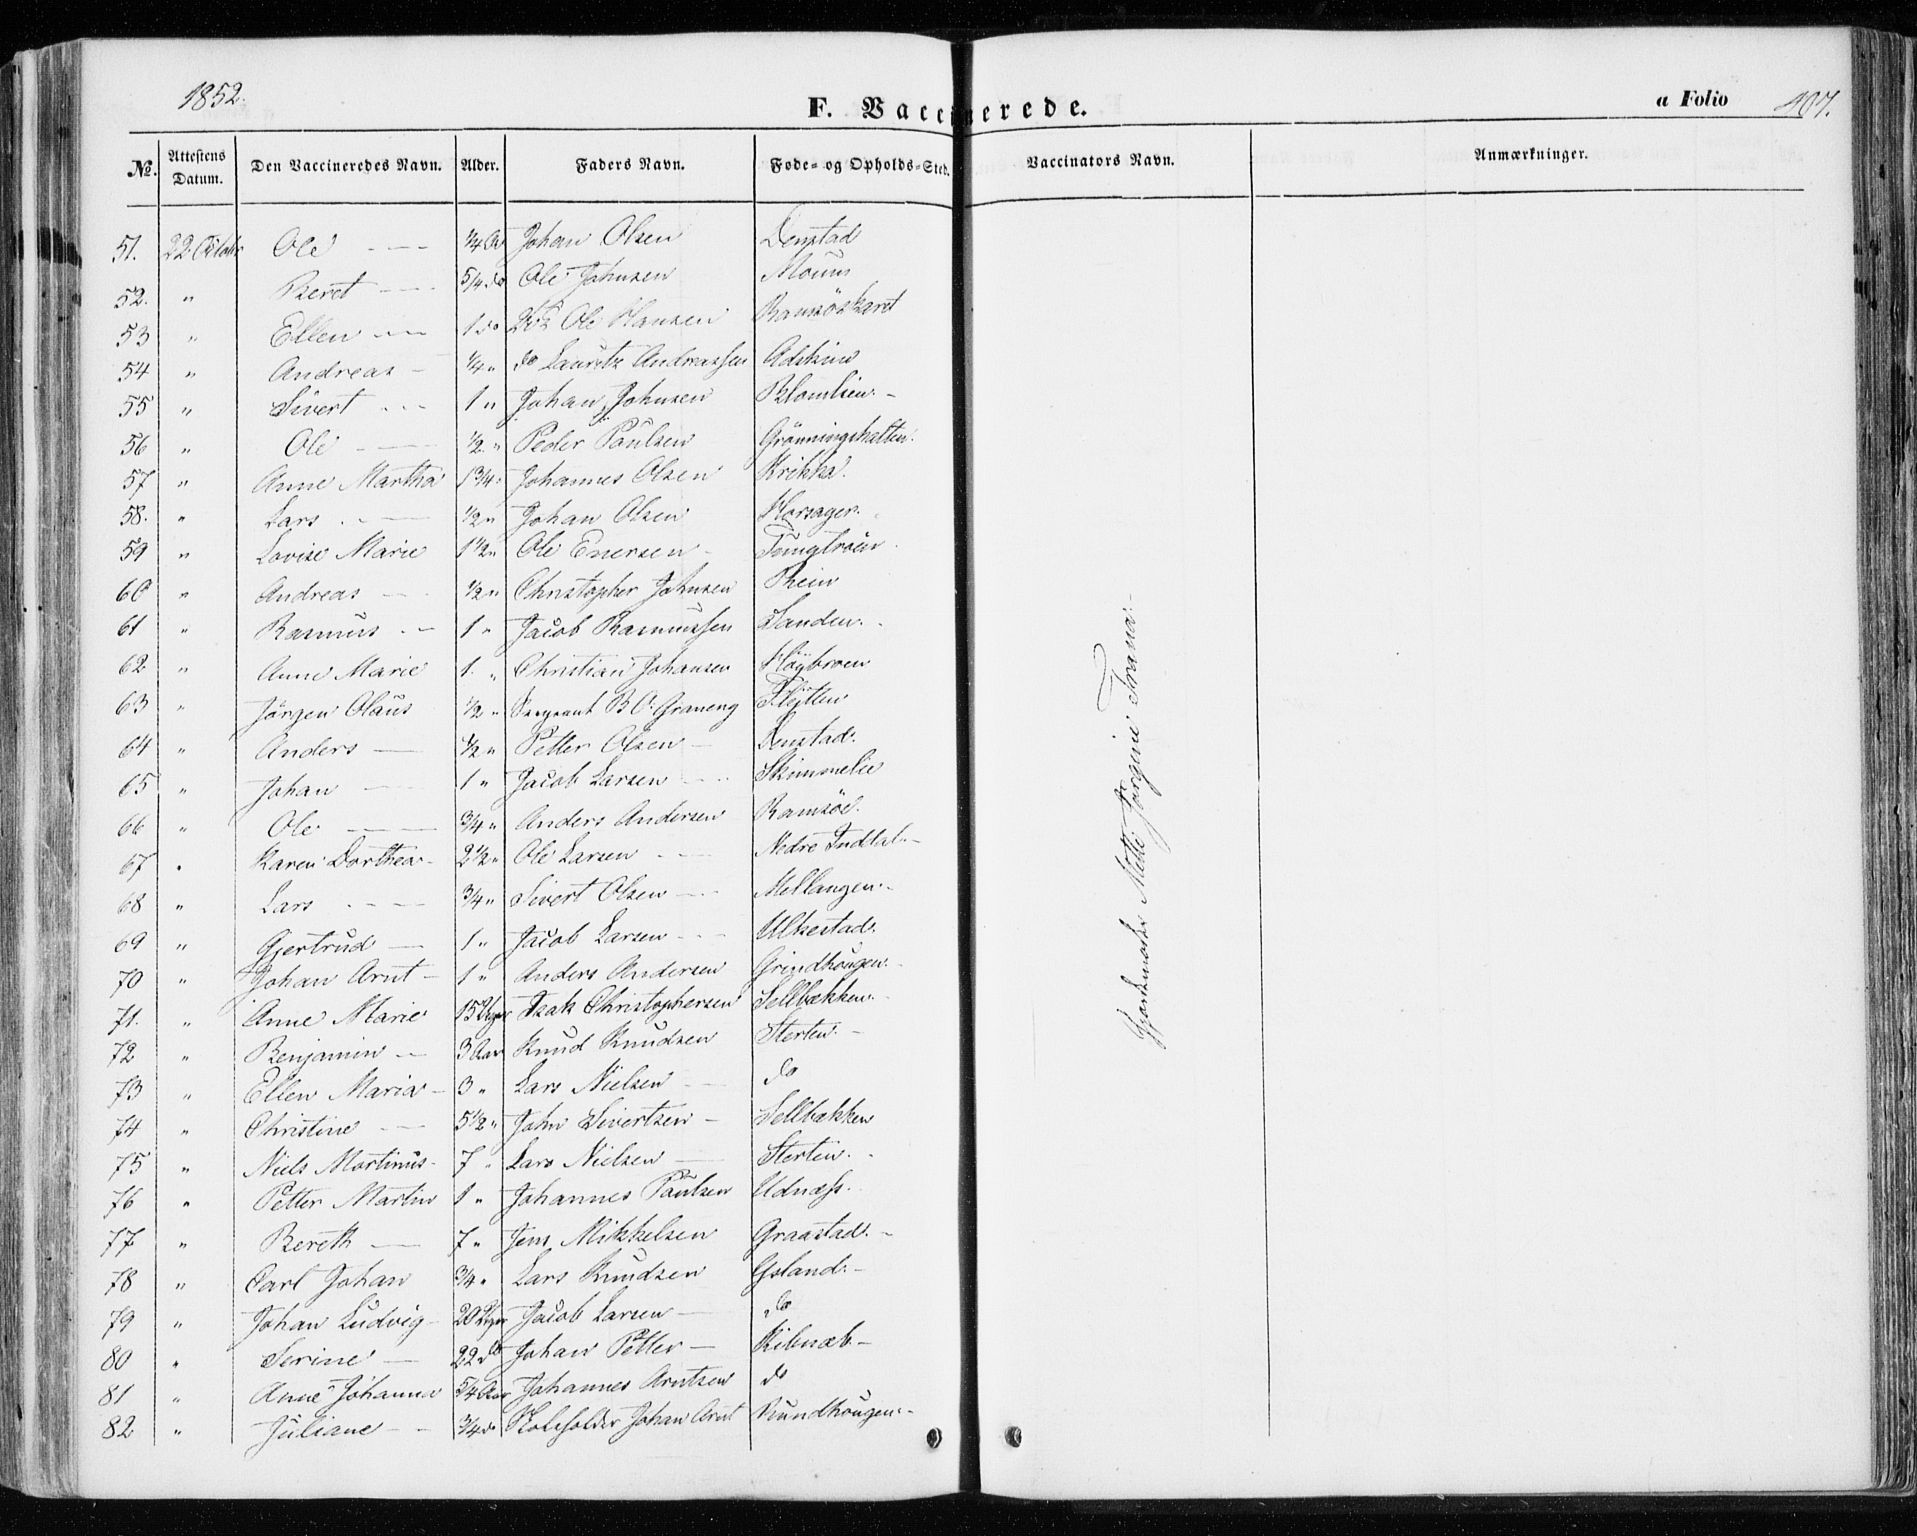 1852.
F. Vaccinerede.
a Folio 407.
No. Attestens Datum. Den Vaccineredes Navn. Alder. Faders Navn. Føde- og Opholds-Sted. Vaccinators Navn. Anmærkninger.
51. 22 Octobr Ole 1/4 Aar Johan Olsen Denstad
52. " Beret 5/4 do Ole Johnsen Moum
53 " Ellen 1 do Ole Hansen Ramsöskaret
54 " Andreas 1/4 " do Lauritz Andreassen
55 " Sivert 1 " Johan Johnsen Blomlien
56 " Ole 1/2 " Peder Paulsen Grönningshatten.
57 " Anne Martha 1 3/4 " Johannes Olsen Krikka.
58. " Lars 1/2 " Johan Olsen Korsager.
59 " Lovise Marie 1 1/2 " Ole Enersen Tungtröen
60 " Andreas 1/2 " Christopher Johnsen Rhein
61 " Rasmus 1 " Jacob Rasmussen Sanden.
62 " Anne Marie 1. " Christian Johansen Höybroen
63 " Jörgen Olaus 1/2 " Sergeant B O. Graneng Flötten
64 " Anders 1/2 " Petter Olsen Denstad.
65 " Johan 1 " Jacob Larsen Skimmelie
66 " Ole 3/4 " Anders Andersen Ramsöe.
67 " Karen Dorthea 2 1/2 " Ole Larsen Nedre Indtal.
68 " Lars 3/4 " Sivert Olsen Mellangen.
69 " Gjertrud 1 " Jacob Larsen Ulkestad.
70 " Johan Arnt 1 " Anders Andersen Grindhougen.
71. " Anne Marie 15 Uger Isak Christophersen Sellbækken.
72 " Benjamin 3 Aar Knud Knudsen Sterten.
73 " Ellen Maria 3 " Lars Nielsen do
74 " Christine 5 1/2 " John Sivertsen Sellbækken
75 " Niels Martinus 7 " Lars Nielsen Sterten.
76 " Petter Martin 1 " Johannes Paulsen Udnæss.
77 " Bereth 7 " Jens Mikkelsen Graastad.
78 " Carl Johan 3/4 " Lars Knudsen Ysland.
79 " Johan Ludvig 20 Uger Jacob Larsen do
80 " Serine 22 do Johan Petter Ribnæb
81 " Anne Johanna 5/4 Aar Johannes Arntsen do
82 " Juliane 3/4 do Johan Arnt Rundhougen.
Gjordemoder Mette Jörgine Frana